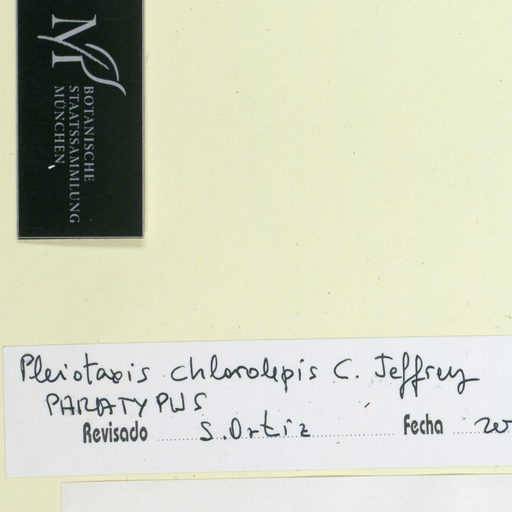 BOTANISCHE
STAATSSAMMLUNG
MÜNCHEN
Pleiotaxis chlorolepis C. Jeffrey
PARATYPUS
Revisado S. Ortiz Fecha